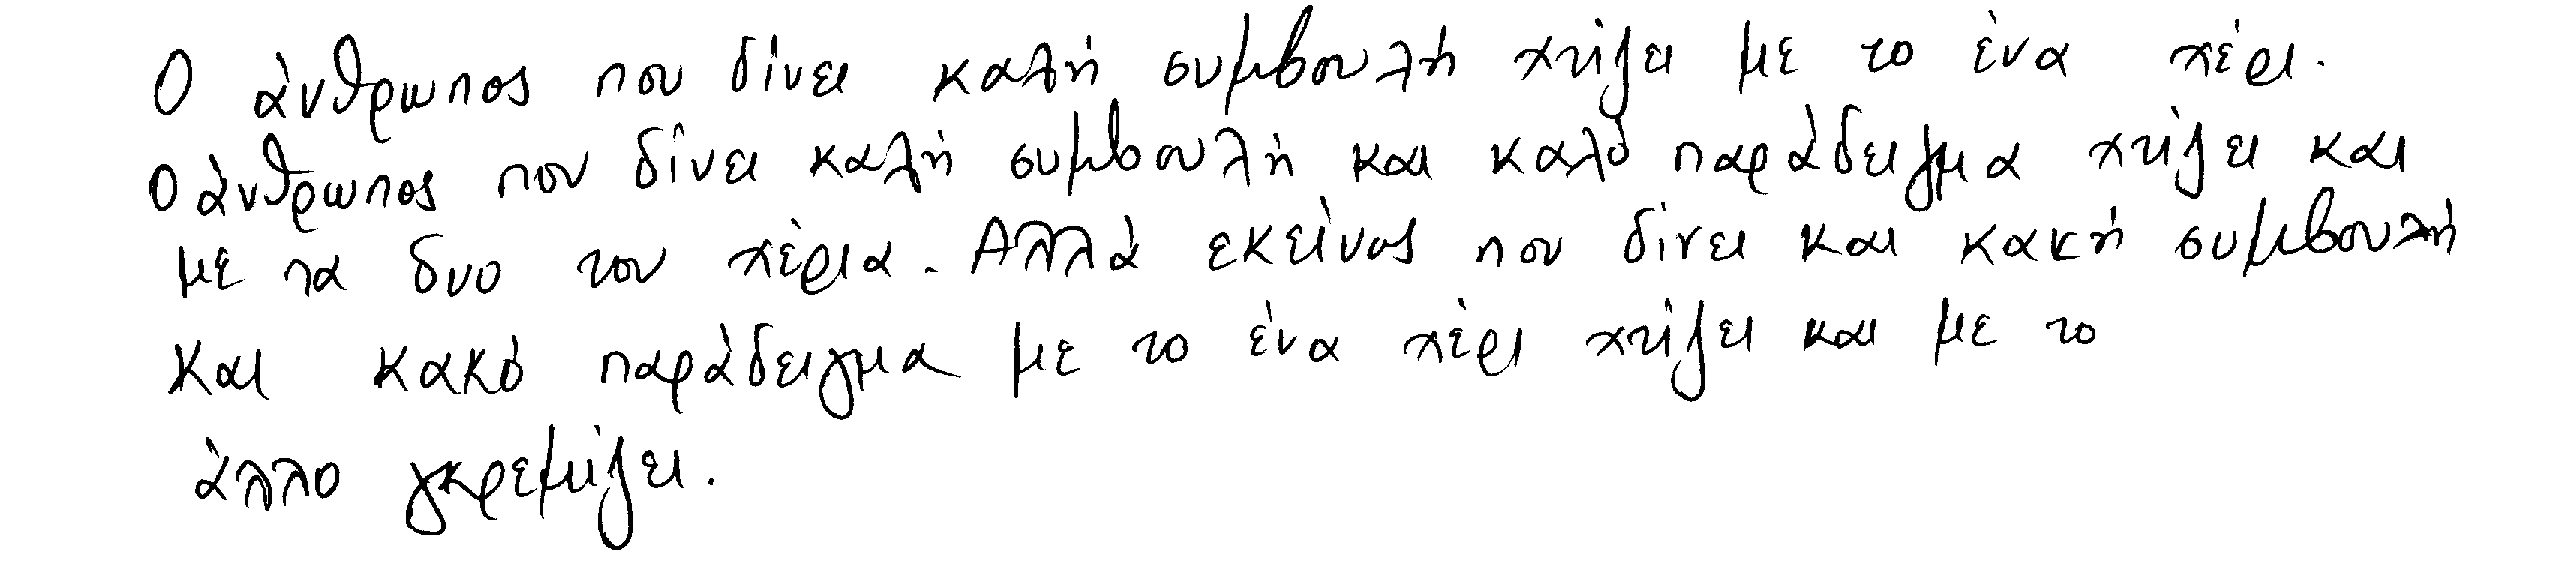 Ο άνθρωπος που δίνει καλή συμβουλή χτίζει με το ένα χέρι.
Ο άνθρωπος που δίνει καλή συμβουλή και καλό παράδειγμα χτίζει και
με τα δυο του χέρια. Αλλά εκείνος που δίνει και κακή συμβουλή
και κακό παράδειγμα με το ένα χέρι χτίζει και με το
άλλο γκρεμίζει.